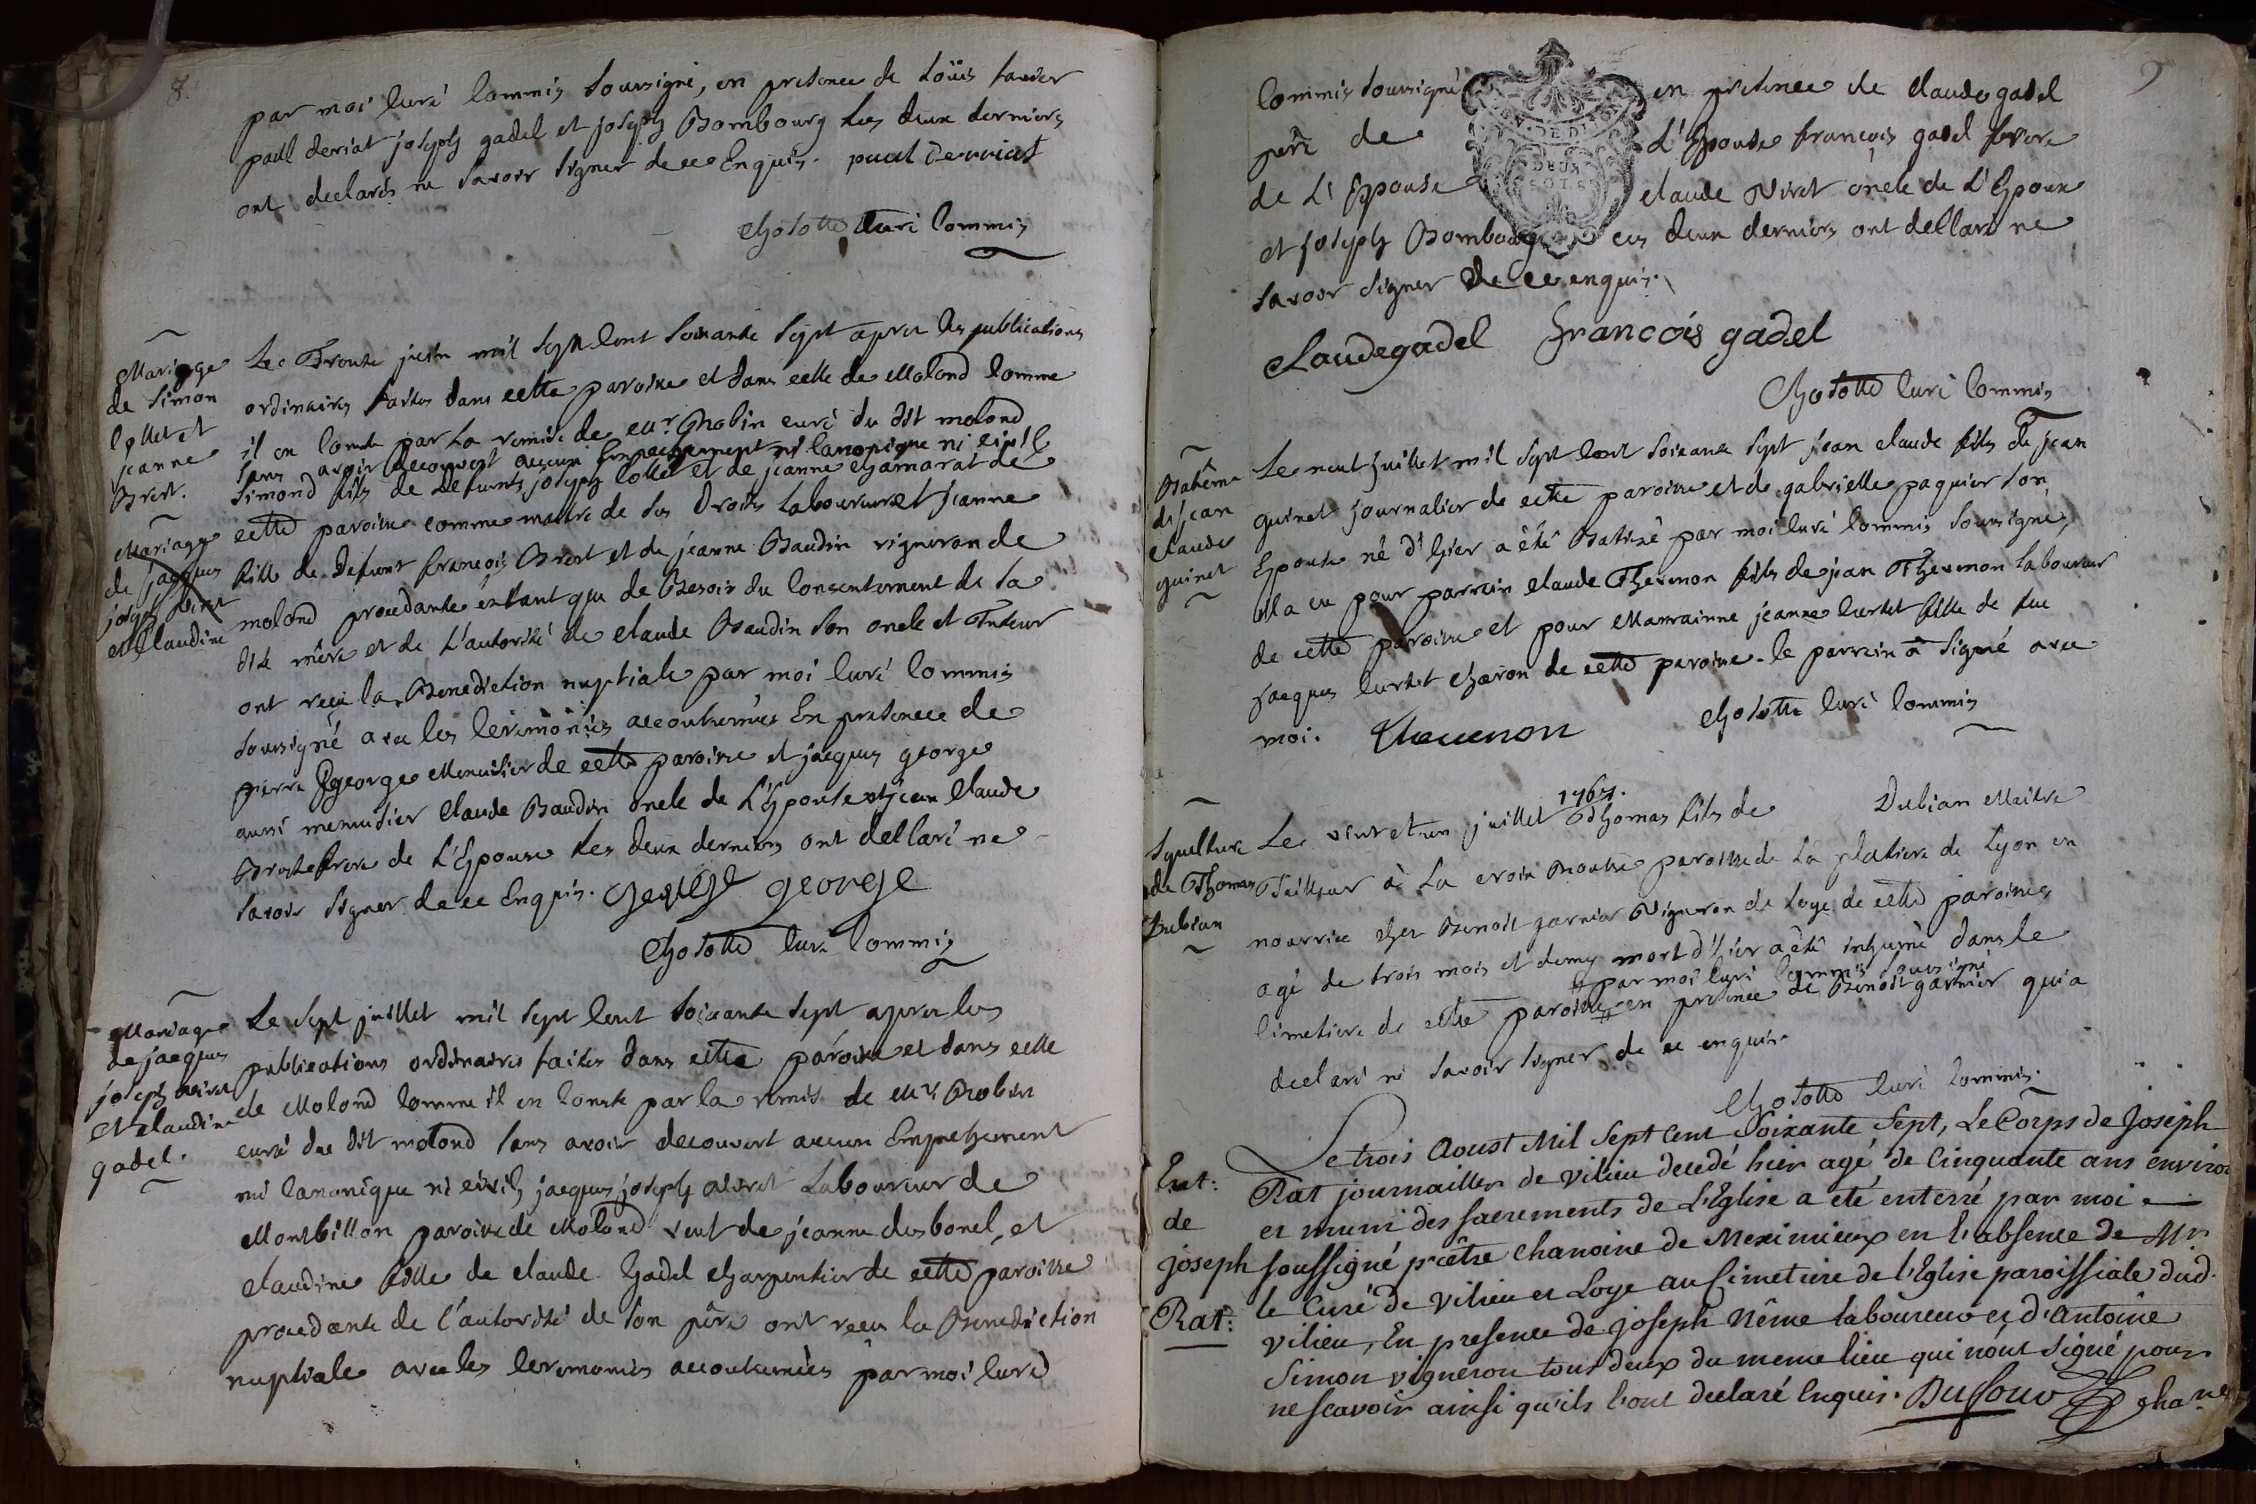 8.
par moi Curé Commis Soussigné, en presence de Loüis
paul deriat joseph gadel et joseph Bombourg Les deux derniers
ont declarés ne Savoir Signer de ce Enquis. paul derriat
Chosotte Curé Commis
Mariage
de Simon
Collet et
jeanne
Brost.
Le Trente juin mil Sept Cent Soixante Sept apres les publications
ordinaires faites dans cette paroisse et dans celle de Molond Comme
il en Conste par La remise de Mr. Robin curé du dit molond
Sans avoir decouvert aucun Empechement ni Canonique ni Civil
Simond fils de defunts joseph Collet et de jeanne Chamarat de
cette paroisse comme maitre de Ses Droits Laboureur et jeanne
fille de defunt françois Brost et de jeanne Baudin vigneron de
molond procedante entant que de Besoin du Consentement de Sa
dite mère et de L'autorité de claude Baudin Son oncle et Tuteur
ont reçu la Benediction nuptiale par moi Curé Commis
Soussigné avec les Ceremonies accoutumées En presence de
pierre george Menuisier de cette paroisse et jacques george
aussi menuisier Claude Baudin oncle de L'Epouse et jean Claude
Brost frere de L'Epouse Les deux derniers ont declaré ne
Savoir Signer de ce Enquis. george
Chosotte Curé Commis
Mariage
de jacques
joseph Viret
et Claudine
Mariage
de jacques
joseph viret
et Claudine
gadel.
Le Sept juillet mil Sept Cent Soixante Sept apres les
publications ordinaires faites dans cette paroisse et dans celle
de Molond Comme il en Conste par la remise de Mr. Robin
curé du dit molond Sans avoir decouvert aucun Empechement
ni Canonique ni civil, jacques joseph viret Laboureur de
Montbillon paroisse de Molond veuf de jeanne desbonel, et
claudine fille de claude gadel charpentier de cette paroisse
procedante de l'autorité de Son père ont reçu la Benediction
nuptiale avec les Ceremonies accoutumées par moi Curé
9
Commis Soussigné en presence de claude gadel
père de L'Epouse françois gadel frere
de L'Epouse claude Viret oncle de L'Epoux
et joseph Bombourg ces deux derniers ont declaré ne
Savoir Signer de ce enquis.
DEUX
SOLS
Claudegadel françois gadel
Chosotte Curé Commis
Batême
de jean
claude
guinet
Le neuf juillet mil Sept Cent Soixante Sept jean claude fils de jean
guinet journalier de cette paroisse et de gabrielle paquier Son
Epouse né d'hier a été Batisé par moi Curé Commis Soussigné,
Il a eu pour parrain claude Thevenon fils de jean Thevenon Laboureur
de cette paroisse et pour Marrainne jeanne Curtet fille de feu
jacques Curtet charon de cette paroisse. le parrein a Signé avec
moi. Thevenon Chosotte Curé Commis
Sepulture
de Thomas
Dubian
1767.
Le vint et un juillet Thomas fils de Dubian Maitre
Tailleur à La croix Rousse paroisse de La platiere de Lyon en
nourrice chez Benoit garnier Vigneron de Loye de cette paroisse
agé de trois mois et demy mort d'hier a été inhumé dans le
# par moi Curé Commis Soussigné
Cimetiere de cette paroisse # en presence de Benoit garnier qui a
declaré ne Savoir Signer de ce enquis.
Chosotte Curé Commis.
Ent:
de
joseph
Rat:
Le trois Aoust Mil Sept Cent Soixante Sept, Le Corps de Joseph
Rat journaillier de vilieu decedé hier agé de Cinquante ans environ
et muni des sacrements de L'Eglise a eté enterré par moi
soussigné prêtre chanoine de Meximieux en l'absence de Mr
le Curé de vilieu et Loye au Cimetiere de l'Eglise paroissiale dud.
vilieu, En presence de joseph Nême laboureur et d'Antoine
Simon vigneron tous deux du meme lieu qui n'ont Signé pour
ne scavoir ainsi qu'ils l'ont declaré Enquis. Dufour chane